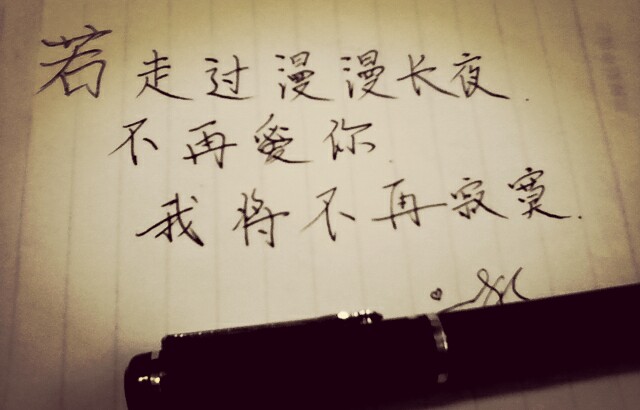 若走过漫漫长夜.
不再愛你.
我将不再寂寞.